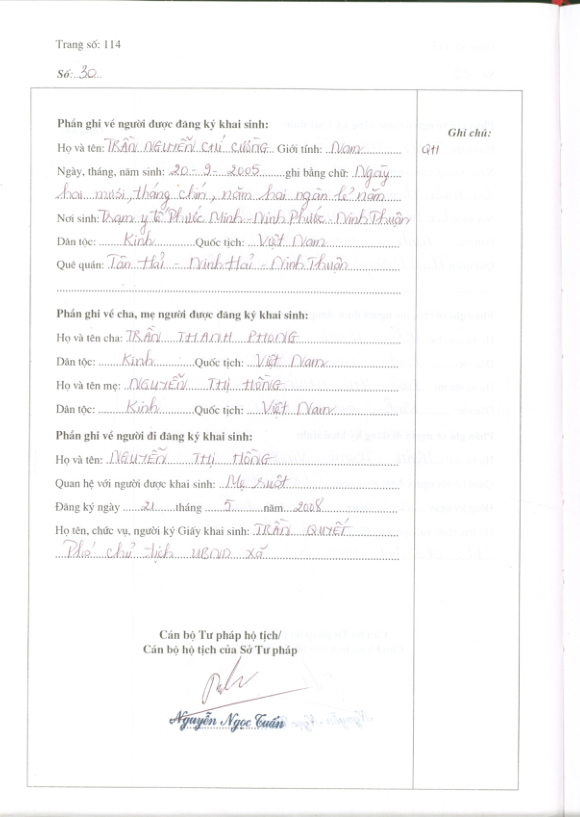 Trang số: 114
Số: 30
Phần ghi về người được đăng ký khai sinh:
Ghi chú:
Họ và tên: TRẦN NGUYỄN CHÍ CƯỜNG Giới tính: Nam
QH
Ngày, tháng, năm sinh: 20 - 9 - 2005 ghi bằng chữ: Ngày
hai mươi, tháng chín, năm hai ngàn lẻ năm
Nơi sinh: Trạm y tế Phước Minh - Ninh Phước - Ninh Thuận
Dân tộc: Kinh Quốc tịch: Việt Nam
Quê quán: Tân Hải - Ninh Hải - Ninh Thuận
Phần ghi về cha, mẹ người được đăng ký khai sinh:
Họ và tên cha: TRẦN THANH PHONG
Dân tộc: Kinh Quốc tịch: Việt Nam
Họ và tên mẹ: NGUYỄN THỊ HỒNG
Dân tộc: Kinh Quốc tịch: Việt Nam
Phần ghi về người đi đăng ký khai sinh:
Họ và tên: NGUYỄN THỊ HỒNG
Quan hệ với người được khai sinh: Mẹ ruột
Đăng ký ngày 21 tháng 5 năm 2008
Họ tên, chức vụ, người ký Giấy khai sinh: TRẦN QUYẾT
Phó chủ tịch UBND xã
Cán bộ Tư pháp hộ tịch/
Cán bộ hộ tịch của Sở Tư pháp
Nguyễn Ngọc Tuấn